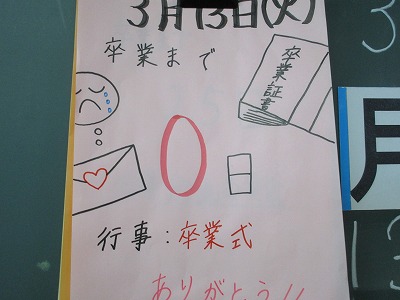 3月13日(火)
卒業まで
卒業証書
0日
行事：卒業式
ありがとう!!
月